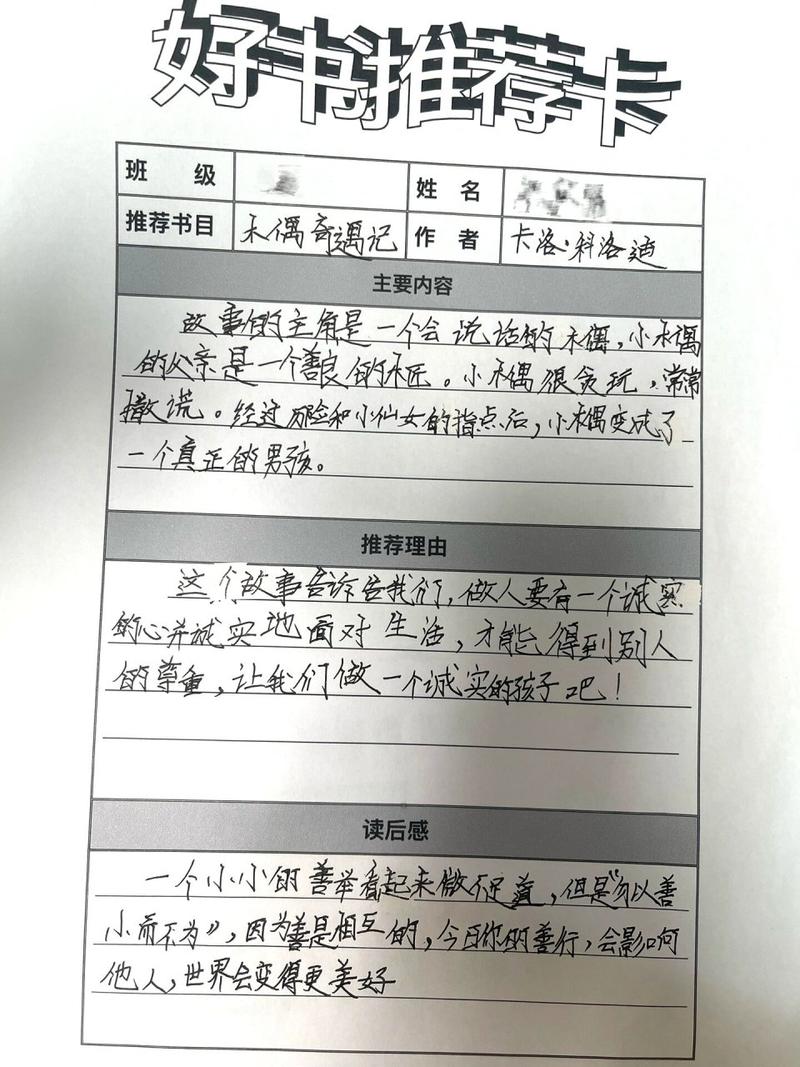 好书推荐卡
班 级 姓 名
推荐书目 木偶奇遇记 作 者 卡洛·科洛迪
主要内容
故事的主角是一个会说话的木偶，小木偶
的父亲是一个善良的木匠。小木偶很贪玩，常常
撒谎。经过历险和小仙女的指点后，小木偶变成了
一个真正的男孩。
推荐理由
这个故事告诉告我们，做人要有一个诚实
的心并诚实地面对生活，才能得到别人
的尊重，让我们做一个诚实的孩子吧！
读后感
一个小小的善举看起来微不足道，但是“勿以善
小而不为”，因为善是相互的，今日你的善行，会影响何
他人，世界会变得更美好